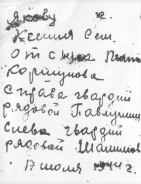 Якову К.
Ксения Сем.
От сына
Коршунова
справа гвардии
рядовой Павлушин
слева гвардии
рядовой Шашилов
17 июля 1944 г.